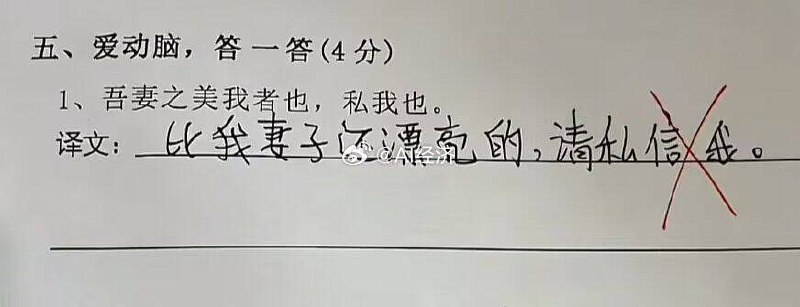 五、爱动脑，答一答(4分)
1、吾妻之美我者也，私我也。
译文：比我妻子还漂亮的，请私信我。
@AI经济